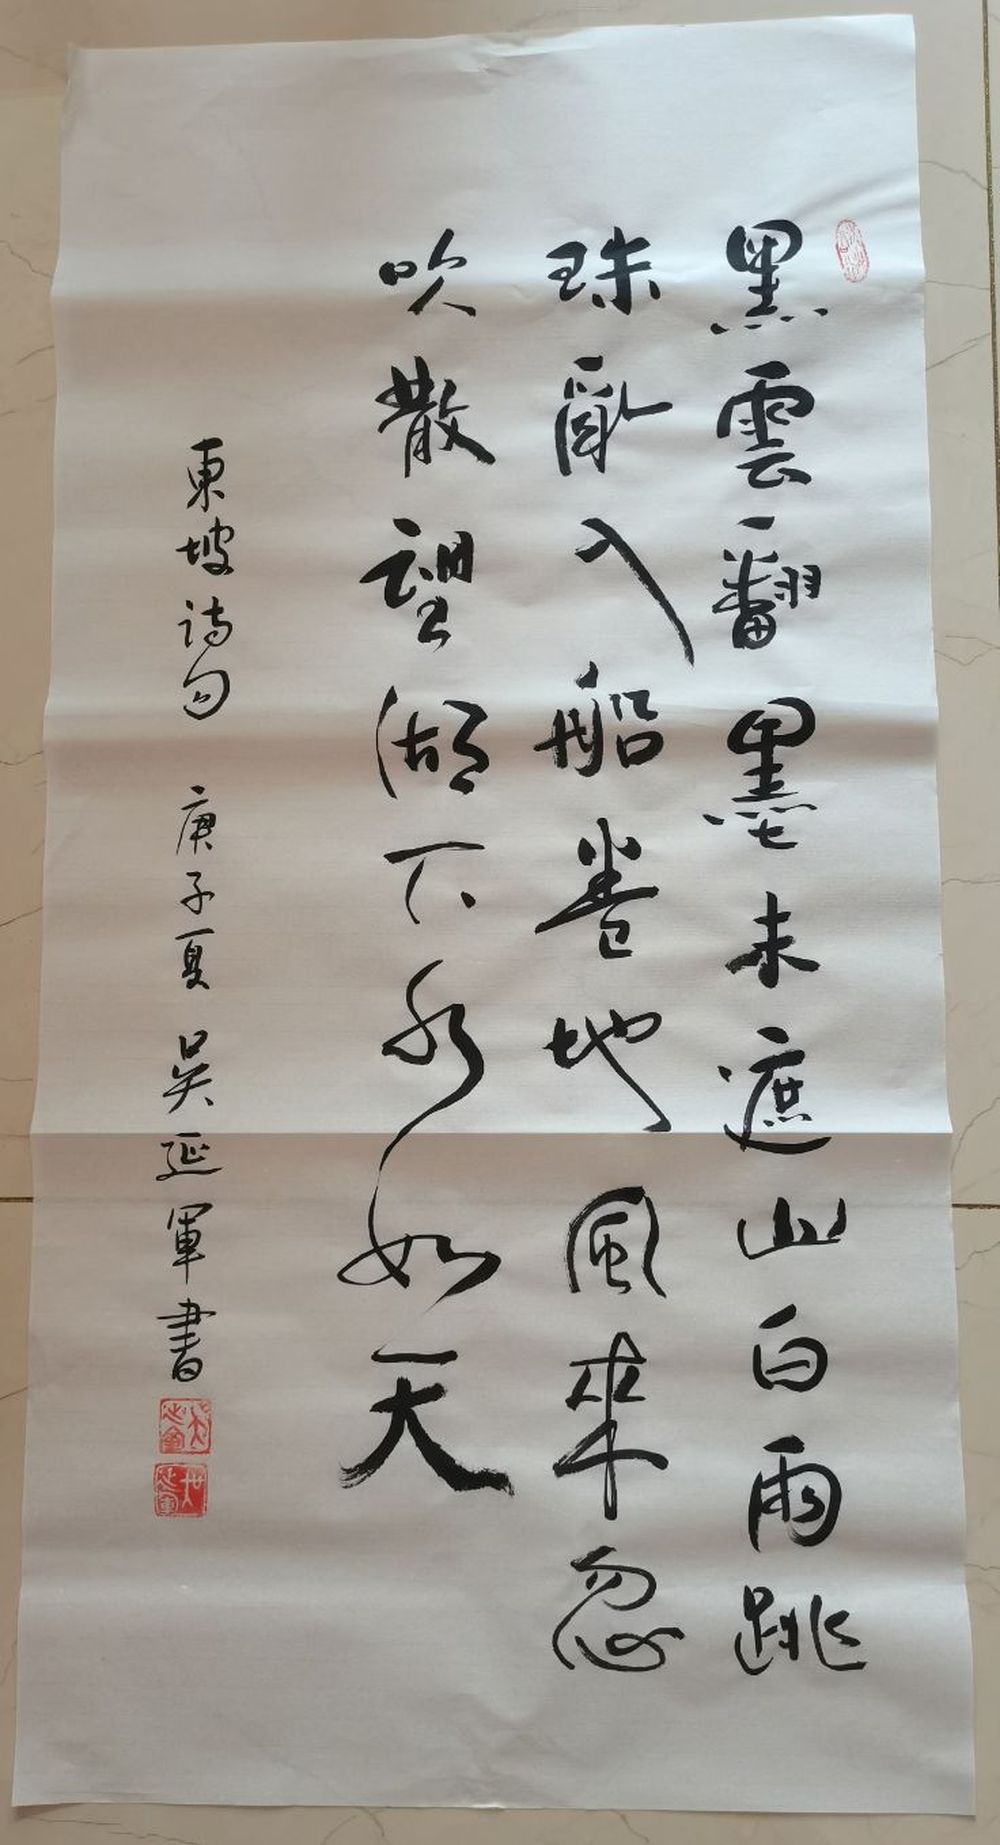 黑雲翻墨未遮山白雨跳
珠亂入船卷地風來忽
吹散望湖下水如天
東坡诗句 庚子夏 吴延軍書